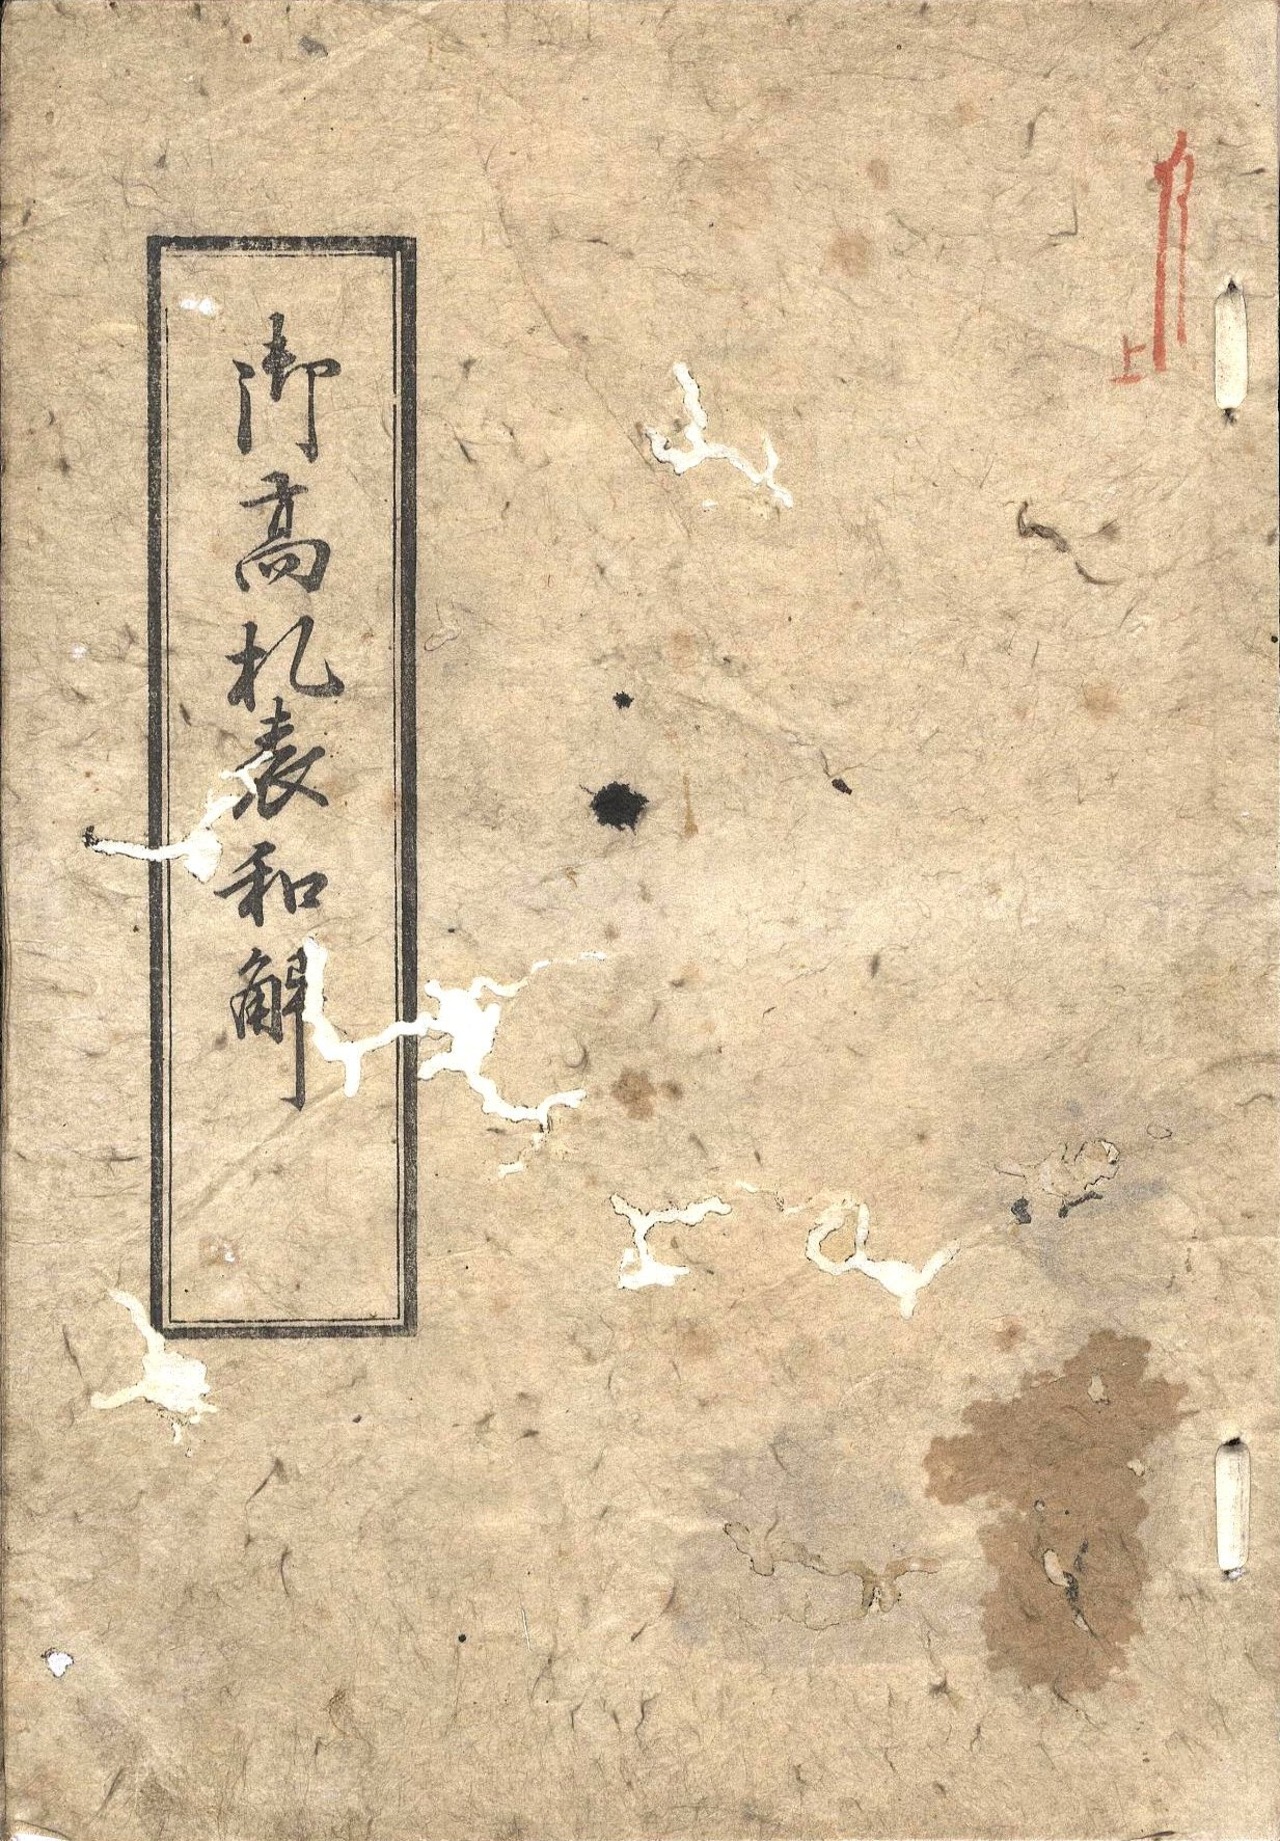 上
御高札表和解